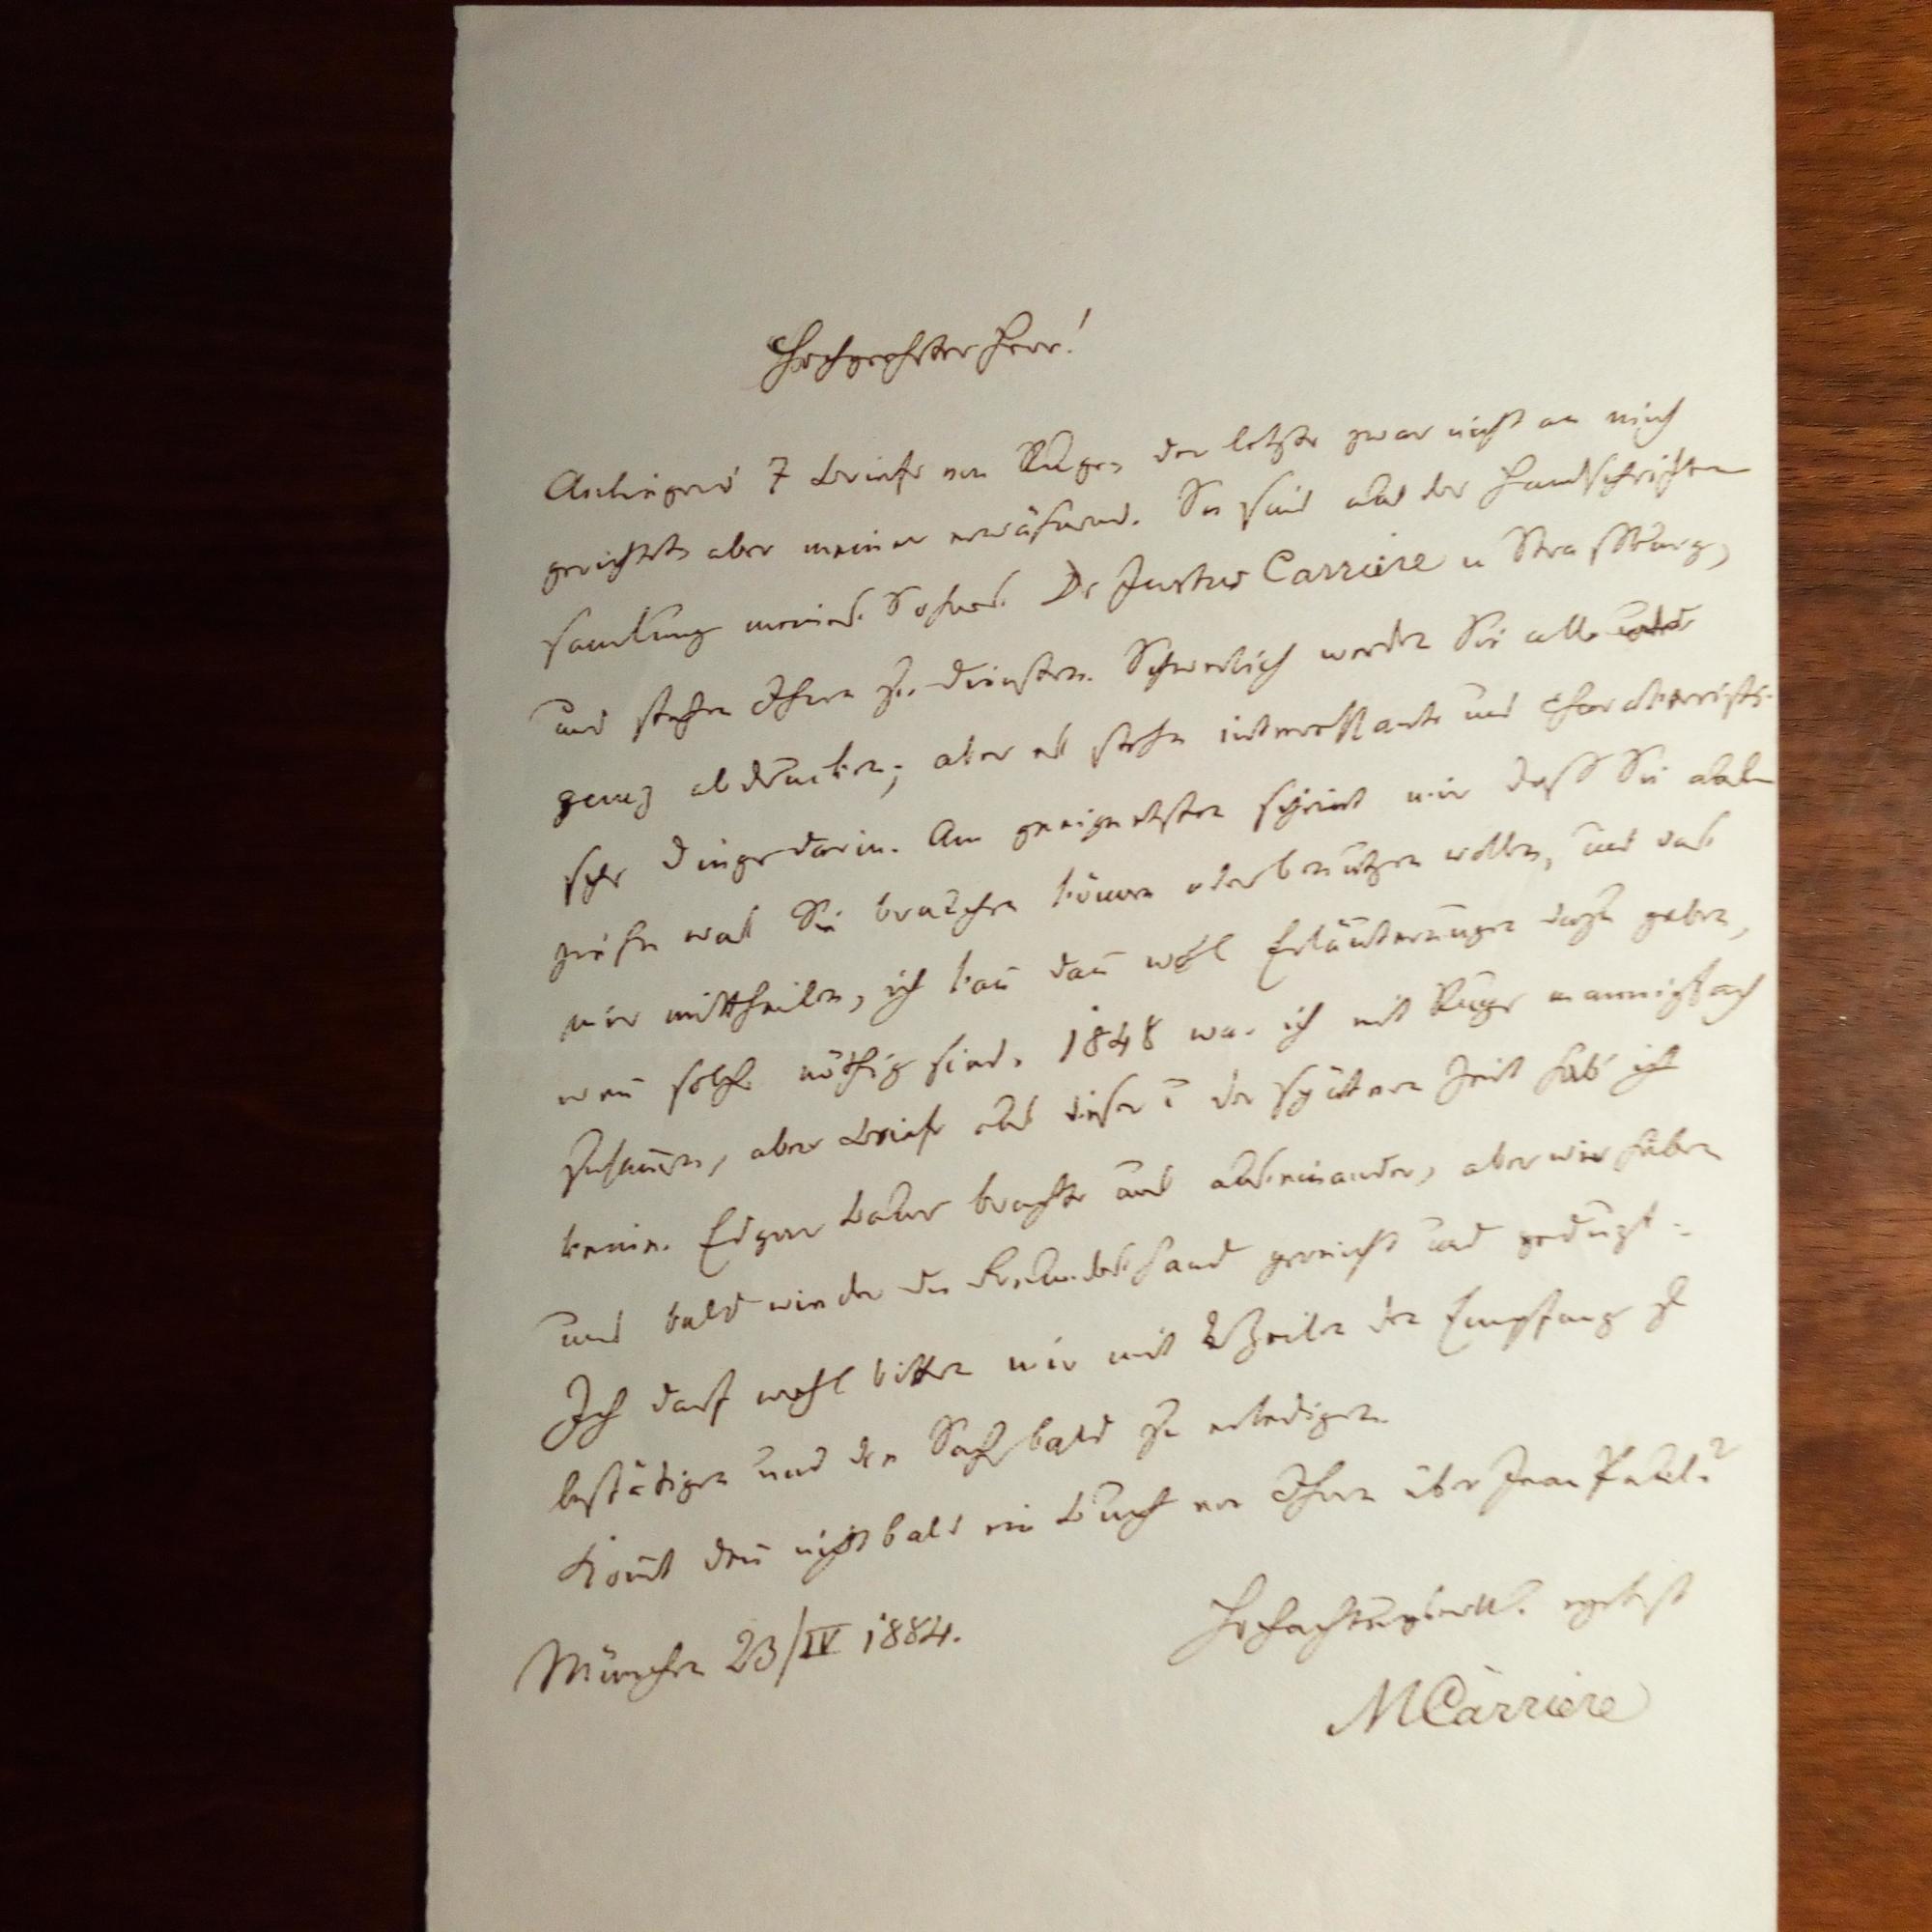 Hochgeehrter Herr!
Anliegend 7 Briefe von Ruge, der letzte zwar nicht an mich
gerichtet, aber meiner erwähnend. Sie sind aus der Handschriften
samlung meines Sohnes Dr Justus Carriere in Strassburg,
und stehen Ihnen zu Diensten. Schwerlich werden Sie alle
ganz abdrucken; aber es stehn interessante und charakteristi-
sche Dinge darin. Am geeignetsten scheint mir dass Sie
was Sie brauchen können oder benutzen wollen, und das
mir mittheilen, ich kañ dañ wohl Erläuterungen dazu geben,
weñ solche nöthig sind. 1848 war ich mit Ruge mannigfach
zusam̄en, aber Briefe aus dieser u der spätern Zeit hab' ich
keine. Edgar Bauer brachte uns auseinander, aber wir haben
uns bald wieder die Hand gereicht und geduzt.
Ich darf wohl bitten mir mit Zeilen den Empfang zu
bestätigen und die Sache bald zu erledigen.
Kom̄t deñ nicht bald ein Buch von Ihnen über Jean Paul?
Hochachtungsvoll ergebenst
München 23/IV 1884.
MCarriere